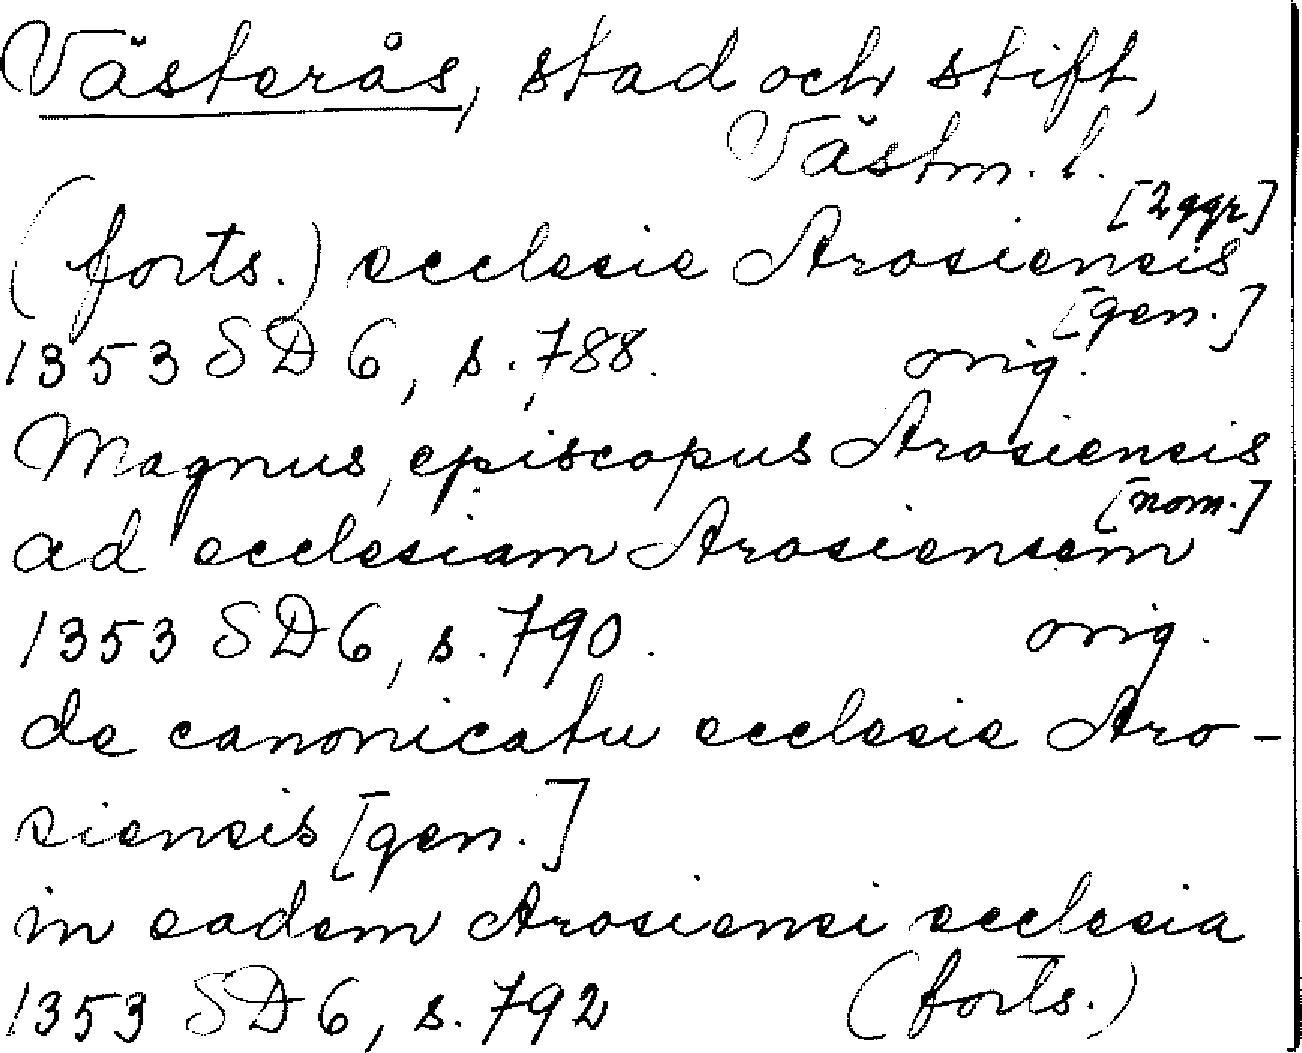 Västerås, stad och stift,
Västm. l.
[2 ggr]
(forts.) ecclesie Arosiensis
[gen.]
1353 SD 6, s. 788. orig.
Magnus, episcopus Arosiensis
[nom.]
ad ecclesiam Arosiensem
1353 SD 6, s. 790. orig.
de canonicatu ecclesie Aro-
siensis [gen.]
in eadem Arosiensi ecclesia
1353 SD 6, s. 792 (forts.)